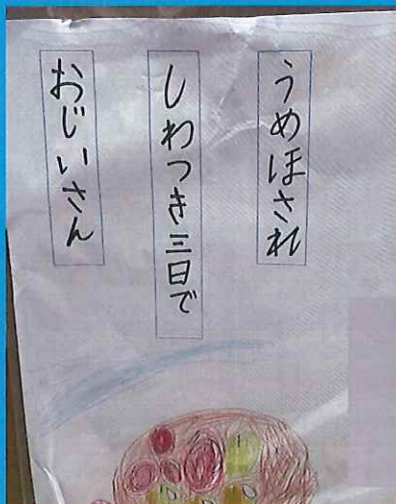 うめほされ
しわつき三日で
おじいさん